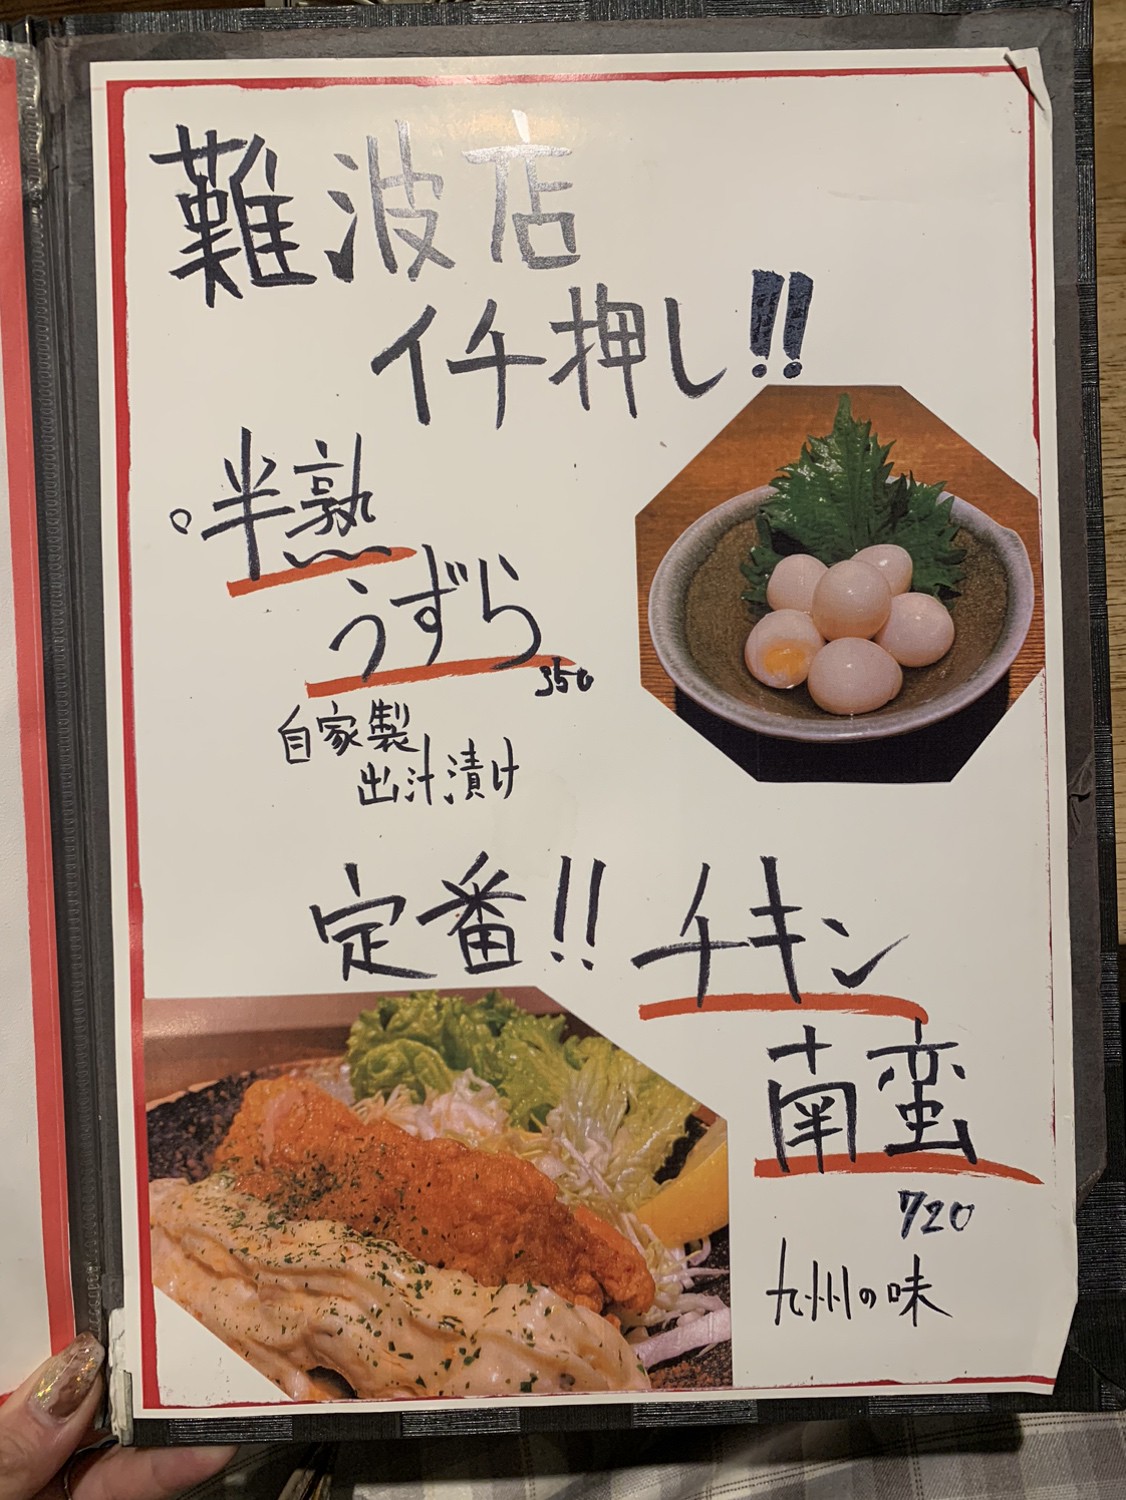 難波店
イチ押し!!
。半熟
うずら
350
自家製
出汁漬け
定番!! チキン
南蛮
720
九州の味